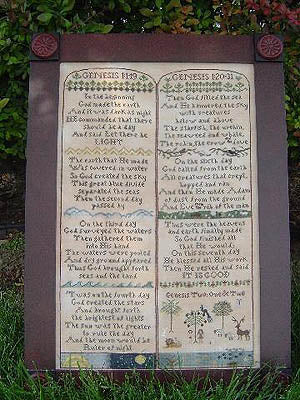 GENESIS 1:1-19
In the beginning
God made the earth
And it was dark as night
HE commanded that there
should be a day
And said Let there be
LIGHT
The earth that He made
Was covered in water
So God created the sky
This great blue divide
separated the seas
Then the second day
passed by
On the third day
God surveyed the waters
Then gathered them
into His hand
The waters were pooled
And dry ground appeared
Thus God brought forth
seas and the land
'Twas on the fourth day
God created the stars
And brought forth
the brightest of lights
The sun was the greater
to rule the day
And the moon would be
Ruler of night
GENESIS 1:20-31
Then God filled the sea
And He showered the sky
with creatures
below and above
The starfish, the
the seaweed and whale
The robin, the crow
dove
On the sixth day
God called from the earth
All creatures that crept,
hopped and ran
And then He made Adam
of dust from the ground
And Eve
of the man
Thus were the heavens
and earth finally made
So God finished all
that He would
On this seventh day
He blessed all their work
Then He rested and said
IT IS GOOD
Genesis Two: One & Two